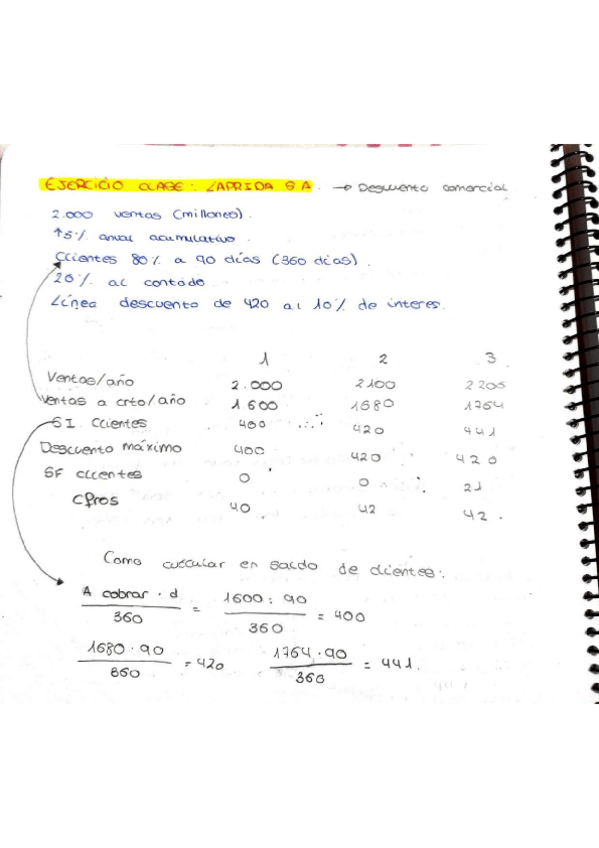 EJERCICIO CLASE: LAPRIDA S A. → Descuento comercial
2.000 ventas (millones).
↑5% anual acumulativo.
Clientes 80% a 90 días (360 días).
20% al contado
Línea descuento de 420 al 10% de interes.
1 2 3
Ventas/año 2.000 2100 2205
Ventas a crto/año 1600 1680 1764
SI. Clientes 400 420 441
Descuento máximo 400 420 420
SF clientes 0 0 21
Cfros 40 42 42.
Como calcular en saldo de clientes:
A cobrar · d / 360 = 1600 · 90 / 360 = 400
1680 · 90 / 360 = 420 1764 · 90 / 360 = 441.